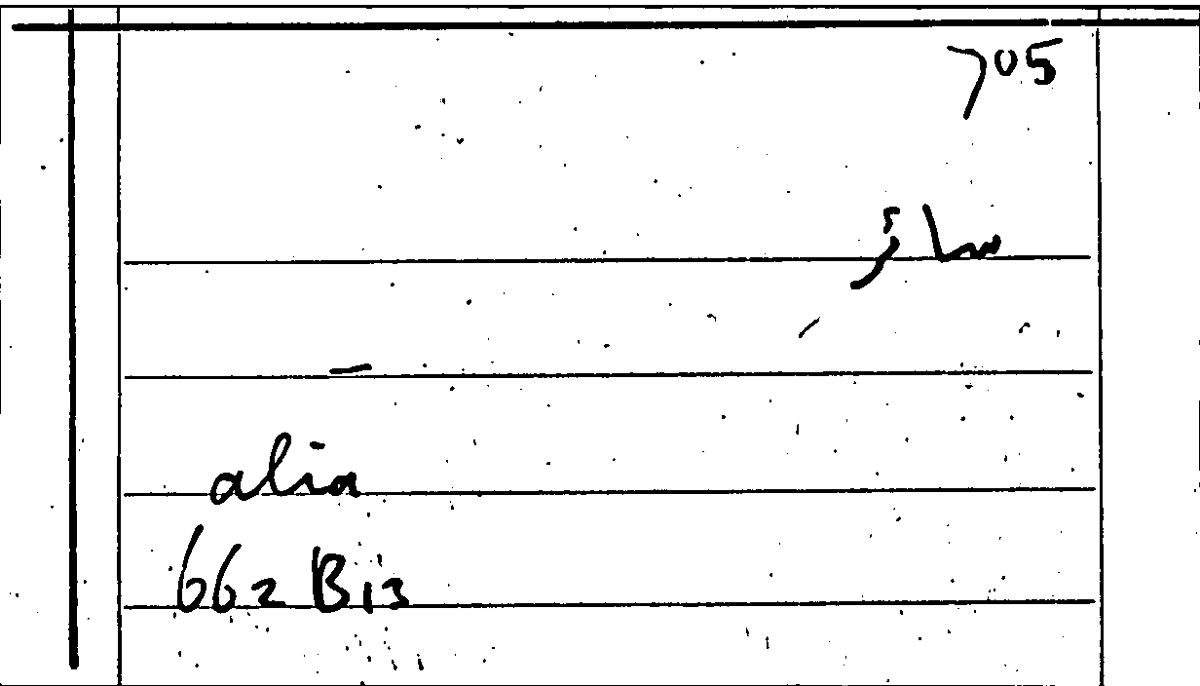 705
ساز
alia
662 B13